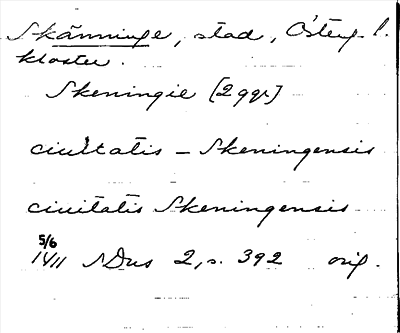 Skänninge, stad, Österg. l.
kloster.
Skeningie [2 ggr]
ciuitatis - Skeningensis
ciuitatis Skeningensis
5/6
1411 SDns 2, s. 392 orig.